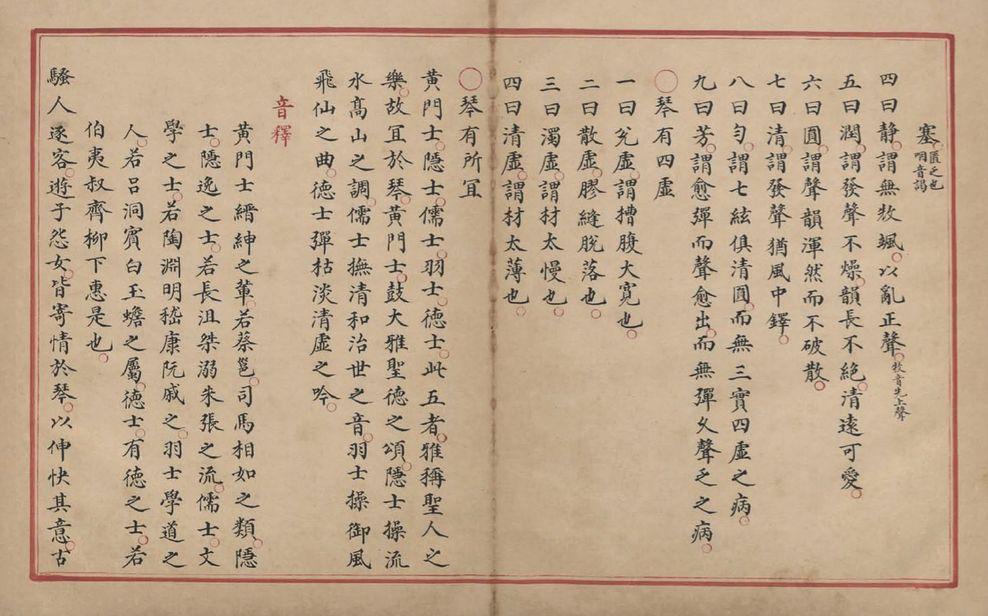 塞匱乏也㗅音謁
四曰靜謂無敎颯以亂正聲敎音先上聲
五曰潤謂發聲不燥韻長不絕清遠可愛
六曰圓謂聲韻渾然而不破散
七曰清謂發聲猶風中鐸
八曰勻謂七絃俱清圓而無三實四虛之病
九曰芳謂愈彈而聲愈出而無彈久聲乏之病
○琴有四虛
一曰宂虛謂槽腹大寬也
二曰散虛膠縫脫落也
三曰濁虛謂材太慢也
四曰清虛謂材太薄也
○琴有所冝
黃門士隱士儒士羽士德士此五者雅稱聖人之
樂故冝於琴黃門士鼓大雅聖德之頌隱士操流
水高山之調儒士撫清和治世之音羽士操御風
飛仙之曲德士彈枯淡清虛之吟
音釋
黃門士縉紳之軰若蔡邕司馬相如之類隱
士隱逸之士若長沮桀溺朱張之流儒士文
學之士若陶淵明嵇康阮咸之羽士學道之
人若呂洞賓白玉蟾之屬德士有德之士若
伯夷叔齊柳下惠是也
騷人逐客逰子怨女皆寄情於琴以伸快其意古